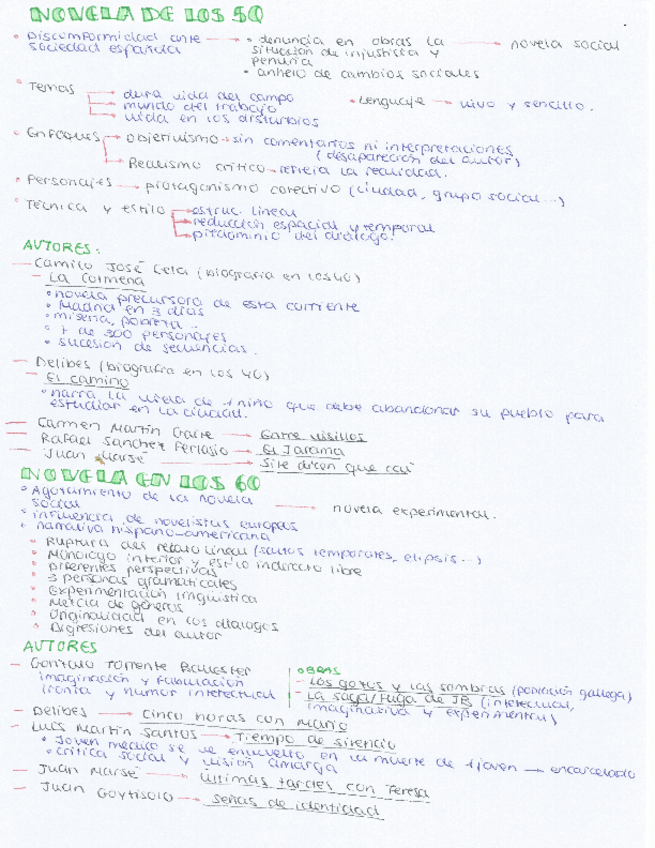 NOVELA DE LOS 50
• Disconformidad ante → • denuncia en obras la → novela social
sociedad española situación de injusticia y
penuria
• anhelo de cambios sociales
• Temas
→ dura vida del campo
→ mundo del trabajo • Lenguaje → vivo y sencillo.
→ vida en los disturbios
• Enfoques → objetivismo → sin comentarios ni interpretaciones
(desaparición del autor)
→ Realismo crítico → refleja la realidad.
• Personajes → protagonismo colectivo (ciudad, grupo social...)
• Técnica y estilo → estruc. lineal
→ reducción espacial y temporal
→ predominio del diálogo.
AUTORES:
— Camilo José Cela (biografía en los 40)
– La Colmena
• novela precursora de esta corriente
• Madrid en 3 días
• miseria, pobreza...
• + de 300 personajes
• sucesión de secuencias.
— Delibes (biografía en los 40)
– El camino
• narra la vida de 1 niño que debe abandonar su pueblo para
estudiar en la ciudad.
— Carmen Martín Gaite → Entre visillos
— Rafael Sánchez Ferlosio → El Jarama
— Juan Marsé → Si te dicen que caí
NOVELA EN LOS 60
• Agotamiento de la novela
social → novela experimental.
• influencia de novelistas europeos
• narrativa hispano-americana
• Ruptura del relato lineal (saltos temporales, elipsis...)
• Monólogo interior y estilo indirecto libre
• Diferentes perspectivas
• 3 personas gramaticales
• Experimentación lingüística
• Mezcla de géneros
• Originalidad en los diálogos
• Digresiones del autor
AUTORES
— Gonzalo Torrente Ballester
imaginación y fabulación
ironía y humor intelectual
OBRAS
– Los gozos y las sombras (población gallega)
– La saga/fuga de JB (intelectual,
imaginativa y experimental)
— Delibes → Cinco horas con Mario
— Luis Martín Santos → Tiempo de silencio
• Joven médico se ve envuelto en la muerte de 1 joven → encarcelado
• crítica social y visión amarga
— Juan Marsé → Últimas tardes con Teresa
— Juan Goytisolo → Señas de identidad